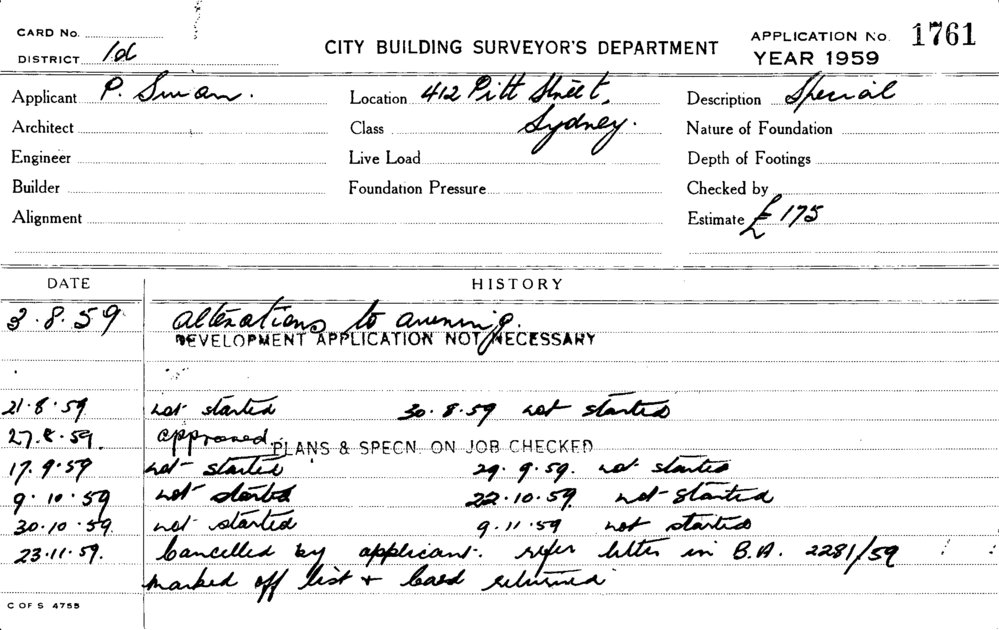 CARD No.
DISTRICT 1d
CITY BUILDING SURVEYOR'S DEPARTMENT
APPLICATION No. 1761
YEAR 1959
Applicant P. Swan. Location 412 Pitt Street, Description Special
Architect Class Sydney. Nature of Foundation
Engineer Live Load Depth of Footings
Builder Foundation Pressure Checked by
Alignment Estimate £175
DATE HISTORY
3.8.59 alterations to awning.
DEVELOPMENT APPLICATION NOT NECESSARY
21.8.59 not started 30.8.59 not started
27.8.59. approved. PLANS & SPECN. ON JOB CHECKED
17.9.59 not started 29.9.59. not started
9.10.59 not started 22.10.59. not started
30.10.59. not started 9.11.59 not started
23.11.59. Cancelled by applicant. refer letter in B.A. 2281/59
marked off list + card returned
C OF S 4755